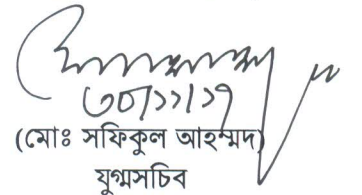 ৩০/১১/১৭
(মোঃ সফিকুল আহম্মদ)
যুগ্মসচিব